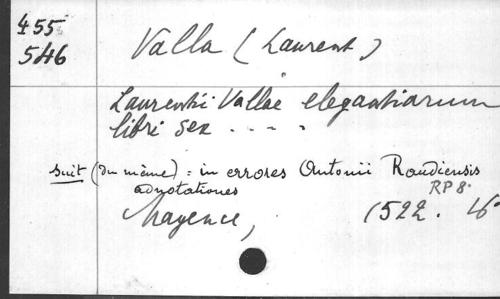 455
546
Valla (Laurent)
Laurentii Vallae elegantiarum
libri sex . . . .
suit (du même) : in errores Antonii Raudiensis
adnotationes
RP 8.
Mayence, 1522. 16°